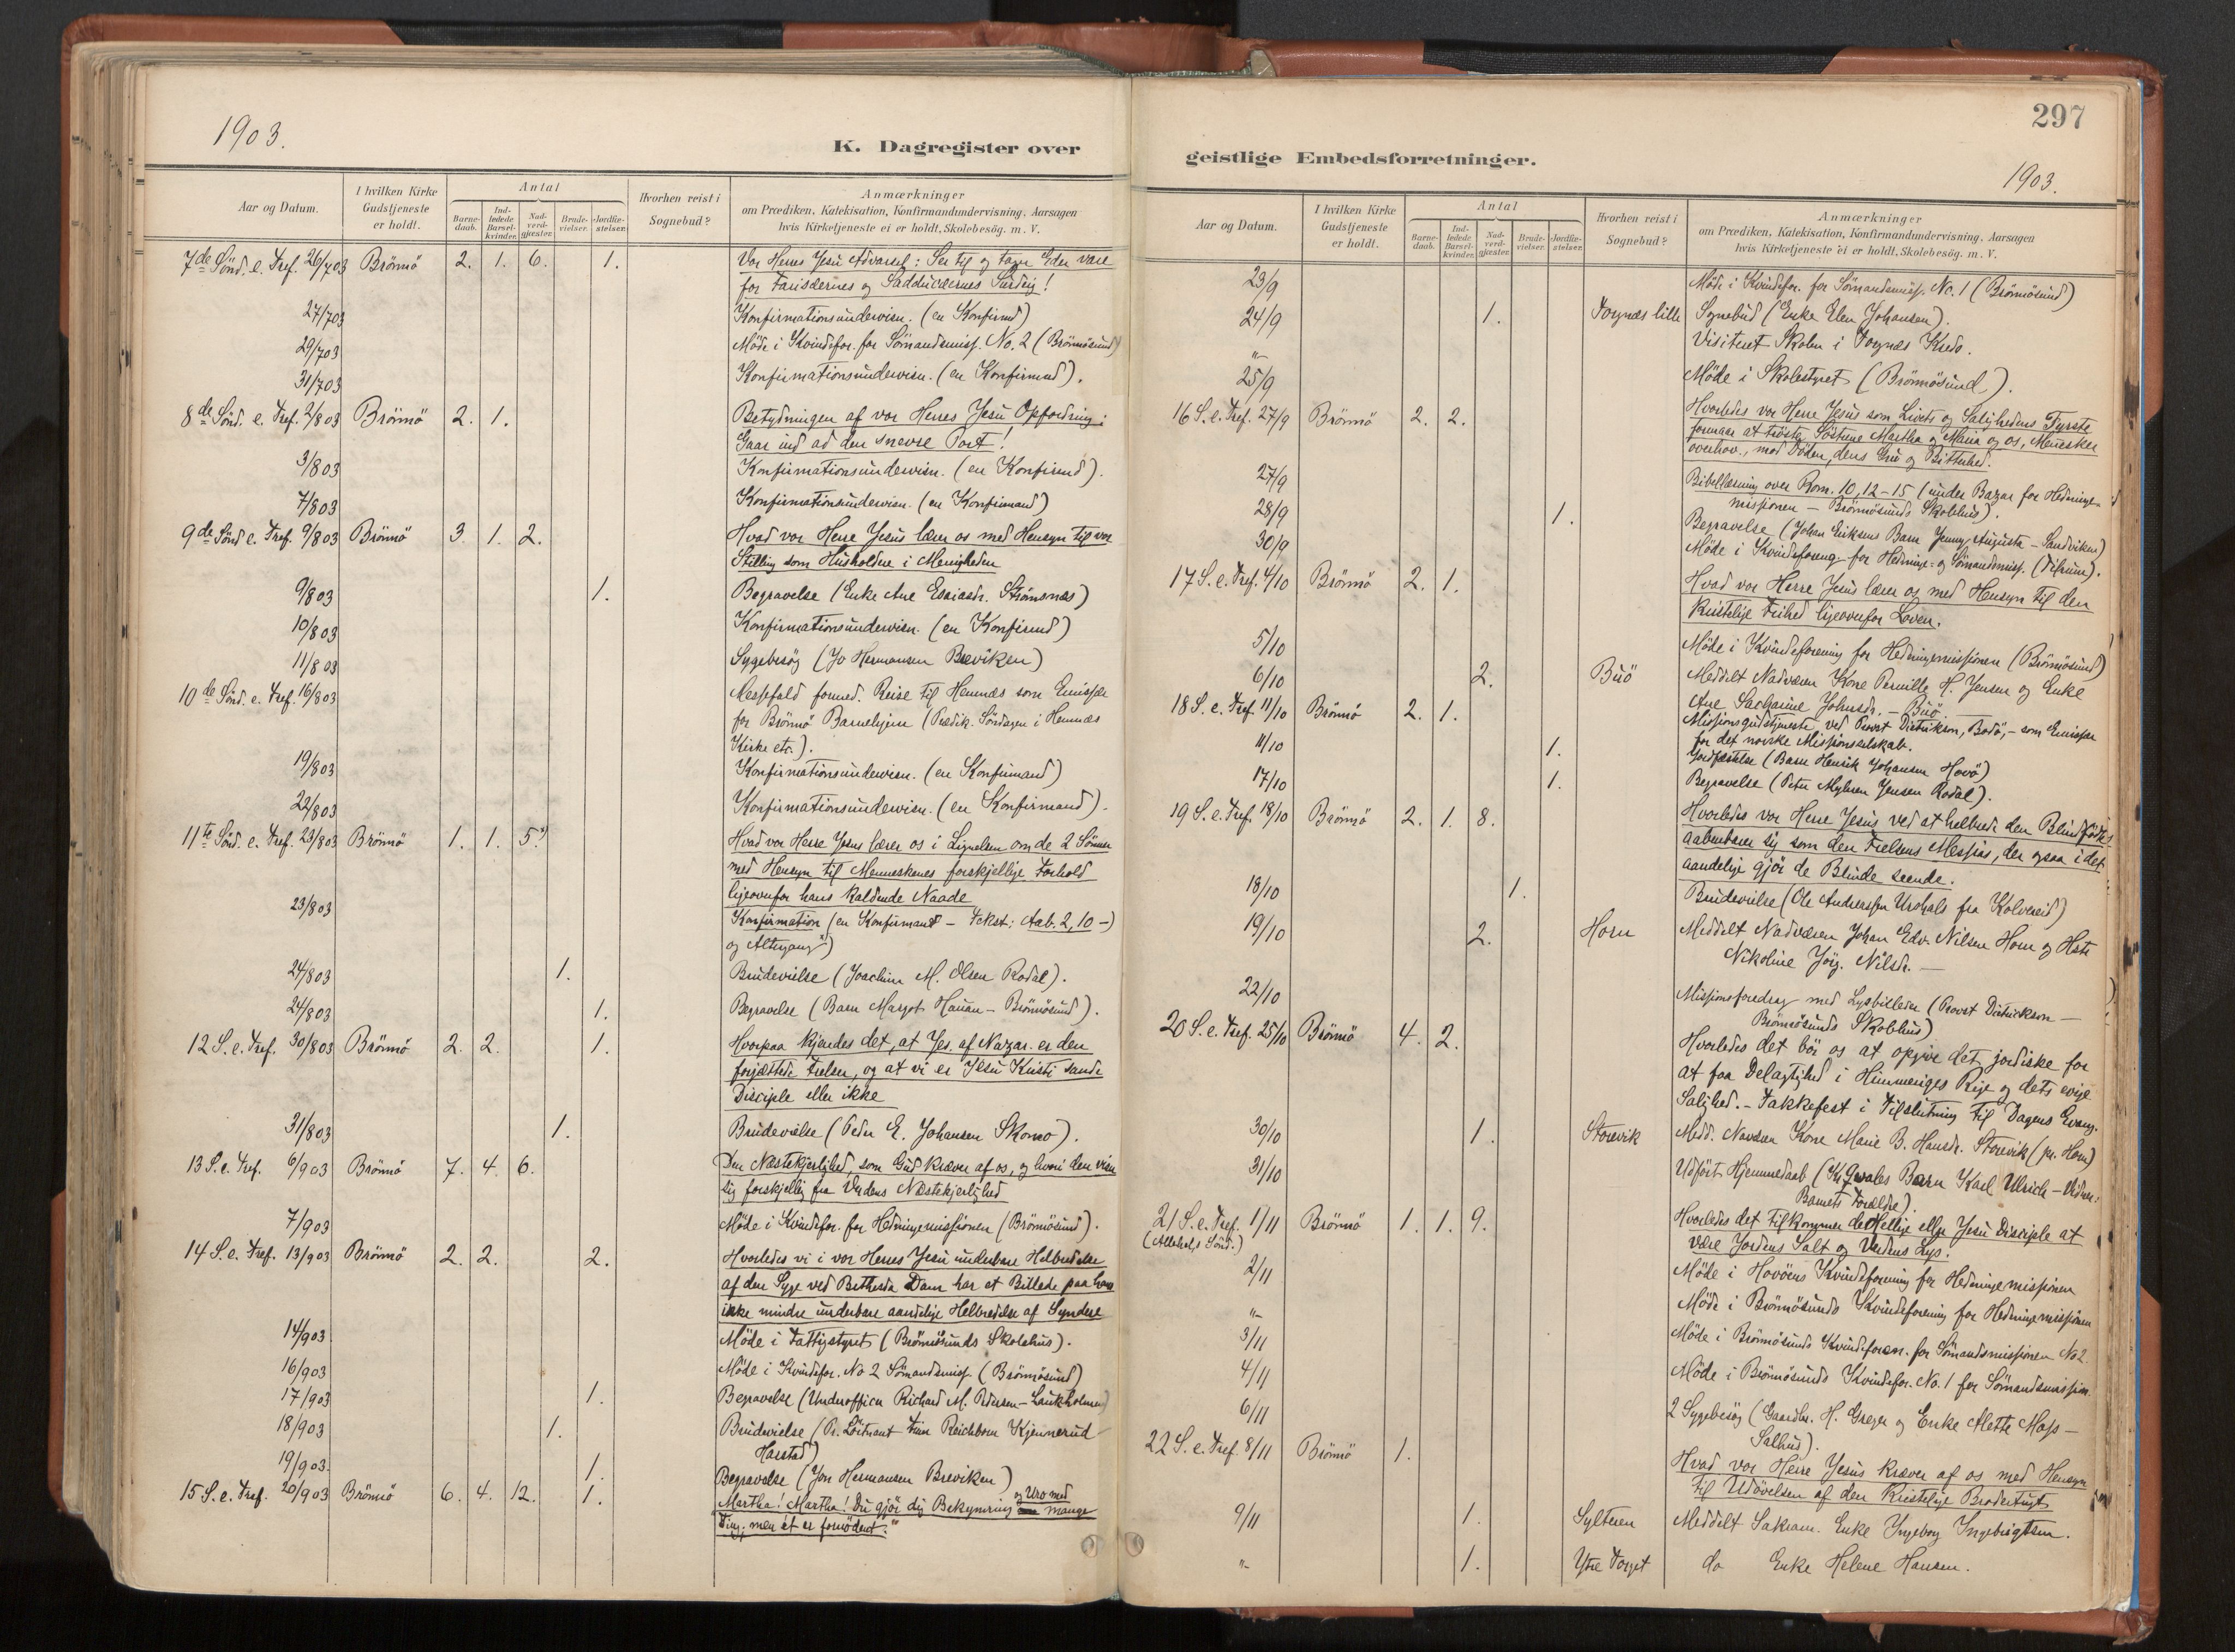 1903.
K. Dagregister over
Aar og Datum.
I hvilken Kirke
Gudstjeneste
er holdt.
Antal
Barne-
daab.
Ind-
ledede
Barsel-
kvinder.
Nad-
verd-
gjæster.
Brude-
vielser.
Jordfæ-
stelser.
Hvorhen reist i
Sognebud?
Anmærkninger
om Prædiken, Katekisation, Konfirmandundervisning, Aarsagen
hvis Kirketjeneste ei er holdt, Skolebesøg. m. V.
7de Sönd. e. Tref. 26/703 Brönnö 2. 1. 6. 1. Vor Herres Jesu Advarsel: Ser til og tager Eder vare
for Farisæernes og Sadducæernes Surdeig!
27/703 Konfirmationsundervisn. (en Konfirmd)
29/703 Möde i Kvindefor. for Sömandsmiss. No. 2 (Brönnösund)
31/703 Konfirmationsundervisn. (en Konfirmd).
8de Sönd. e. Tref. 2/803 Brönnö 2. 1. Betydningen af vor Herres Jesu Opfordring:
Gaar ind ad den snevre Port!
3/803 Konfirmationsundervisn. (en Konfirmd).
7/803 Konfirmationsundervisn. (en Konfirmand)
9de Sönd e. Tref. 9/803 Brönnö 3. 1. 2. Hvad vor Herre Jesus lærer os med Hensyn til vor
Stilling som Husholdere i Menigheden
9/803 1. Begravelse (Enke Ane Esaiasdr. Strömsnæs)
10/803 Konfirmationsundervisn. (en Konfirmd)
11/803 Sygebesög (Jo Hermansen Breviken)
10de Sönd. e. Tref. 16/803 Messefald formed. Reise til Hemnæs som Emissær
for Brönnö Barnehjem (Prædik. Söndagen i Hemnæs
Kirke etc.).
19/803 Konfirmationsundervisn. (en Konfirmand)
22/803 Konfirmationsundervisn. (en Konfirmand).
11te Sönd. e. Tref. 23/803 Brönnö 1. 1. 5.*) Hvad vor Herre Jesus lærer os i Lignelsen om de 2 Sönner
med Hensyn til Menneskenes forskjellige Forhold
ligeoverfor hans kaldende Naade
23/803 Konfirmation (en Konfirmand – Tekst: Aab. 2, 10 –)
og Altergang*)
24/803 1. Brudevielse (Joachim M. Olsen Rodal).
24/803 1. Begravelse (Barn Margot Hauan – Brönnösund).
12 S. e. Tref. 30/803 Brönnö 2. 2. 1. Hvorpaa kjendes det, at Jes. af Nazar. er den
forjættede Frelser, og at vi er Jesu Kristi sande
Disciple eller ikke
31/803 1. Brudevielse (Peder E. Johansen Skomo).
13 S. e. Tref. 6/903 Brönnö 7. 4. 6. Den Næstekjærlighed, som Gud kræver af os, og hvori den viser
sig forskjellig fra Verdens Næstekjerlighed
7/903 Möde i Kvindefor. for Hedningemissionen (Brönnösund).
14 S. e. Tref. 13/903 Brönnö 2. 2. 2. Hvorledes vi i vor Herres Jesu underbare Helbredelse
af den Syge ved Bethesda Dam har et Billede paa hans
ikke mindre underbare aandelige Helbredelse af Syndere
14/903 Möde i Fattigstyret (Brönnösunds Skolehus).
16/903 Möde i Kvindefor. No 2 Sömandsmiss. (Brönnösund)
17/903 1. Begravelse (Underofficer Richard M. Pedersen – Laukholmen)
18/903 1. Brudevielse (Pr. Löitnant Reichborn Kjennerud
Harstad)
19/903. 1. Begravelse (Jon Hermansen Breviken)
15 S. e. Tref. 20/903 Brönnö 6. 4. 12. 1. Martha! Martha! Du gjör dig Bekymring og Uro med mange
Ting; men et er fornödent."
297
geistlige Embedsforretninger.
1903.
Aar og Datum.
I hvilken Kirke
Gudstjeneste
er holdt.
Antal
Barne-
daab.
Ind-
ledede
Barsel-
kvinder.
Nad-
verd-
gjæster.
Brude-
vielser.
Jordfæ-
stelser.
Hvorhen reist i
Sognebud?
Anmærkninger
om Prædiken, Katekisation, Konfirmandundervisning, Aarsagen
hvis Kirketjeneste ei er holdt, Skolebesög. m. V.
23/9 Möde i Kvindefor. for Sömandsmiss. No. 1 (Brönnösund)
24/9 1. Torgnæs lille Sognebud (Enke Elen Johansen).
"- Visiteret Skolen i Torgnæs Kreds.
25/9 Möde i Skolestyret (Brönnösund).
16 S. e. Tref. 27/9 Brönnö 2. 2. Hvorledes vor Herre Jesus som Livets og Salighedens Fyrste
formaar at tröste Söstrene Martha og Maria og os, Mennesker
overhov., mod Döden, dens Gru og Bitterhed.
27/9 Bibellæsning over Rom. 10, 12–15 (under Bazar for Hedninge-
missionen – Brönnösunds Skolehus).
28/9 1. Begravelse (Johan Eriksens Barn Jenny Augusta – Sandviken)
30/9 Möde i Kvindeforeng. for Hedninge- og Sömandsmiss. (Tilrum).
17 S. e. Tref. 4/10 Brönnö 2. 1. Hvad vor Herre Jesus lærer os med Hensyn til den
kristelige Frihed ligeoverfor Loven.
5/10 Möde i Kvindeforening for Hedningemissionen (Brönnösund)
6/10 2. Buö Meddelt Nadveren Kone Pernille H. Jensen og Enke
Ane Sacharine Johnsdr. – Buö
18 S. e. Tref 11/10 Brönnö 2. 1. Missionsgudstjeneste ved Provst Dietrichson, Bodö, – som Emissær
for det norske Missionsselskab.
11/10 1. Jordfæstelse (Barn Henrik Johansen Hovö)
17/10 1. Begravelse (Peter Myhren Jensen Rodal).
19 S. e. Tref 18/10 Brönnö 2. 1. 8. Hvorledes vor Herre Jesus ved at helbrede den Blindfödte
aabenbarer sig som den Frelsens Messias, der ogsaa i det
aandelige gjör de Blinde seende.
18/10 1. Brudevielse (Ole Andreassen Urdhals fra Kolvereid)
19/10 2. Horn Meddelt Nadveren Johan Edv. Nilsen Horn og Hstr
Nikoline Jörg. Nilsdr. –
22/10 Missionsforedrag med Lysbilleder (Provst Dietrichson –
Brönnösunds Skolehus)
20 S. e. Tref. 25/10 Brönnö 4. 2. Hvorledes det bör os at opgive det jordiske for
at faa Delagtighed i Himmeriges Rige og dets evige
Salighed. – Takkefest i Tilslutning til Dagens Evang.
30/10 1. Storvik Medd. Navdren Kone Marie B. Hansdr. Storevik (pr. Horn)
31/10 Udfört Hjemmedaab (Kr. Barn Karl Ulrich – Vidner:
Barnets Forældre).
21 S. e. Tref. 1/11 Brönnö 1. 1. 9. Hvorledes det tilkommer de Hellige eller Jesu Disciple at
(Allehelg. Sönd.) være Jordens Salt og Verdens Lys.
2/11 Möde i Hovöens Kvindeforening for Hedningemissionen
"- Möde i Brönnösunds Kvindeforening for Hedningemissionen
3/11 Möde i Brönnösunds Kvindeforen. for Sömandsmissionen No 2.
4/11 Möde i Brönnösunds Kvindefor. No. 1 for Sömandsmission.
6/11 2 Sygebesög (Gaardbr. H. Greger og Enke Mette Moss –
Salhus).
22 S. e. Tref. 8/11 Brönnö 1. Hvad vor Herre Jesus kræver af os med Hensyn
til Udövelsen af den kristelige Brodertugt
9/11 1. Sylteren Meddelt Sakram. Enke Ingeborg Ingebrigtsen.
"- 1. Ytre Torget do Enke Helene Hansen.